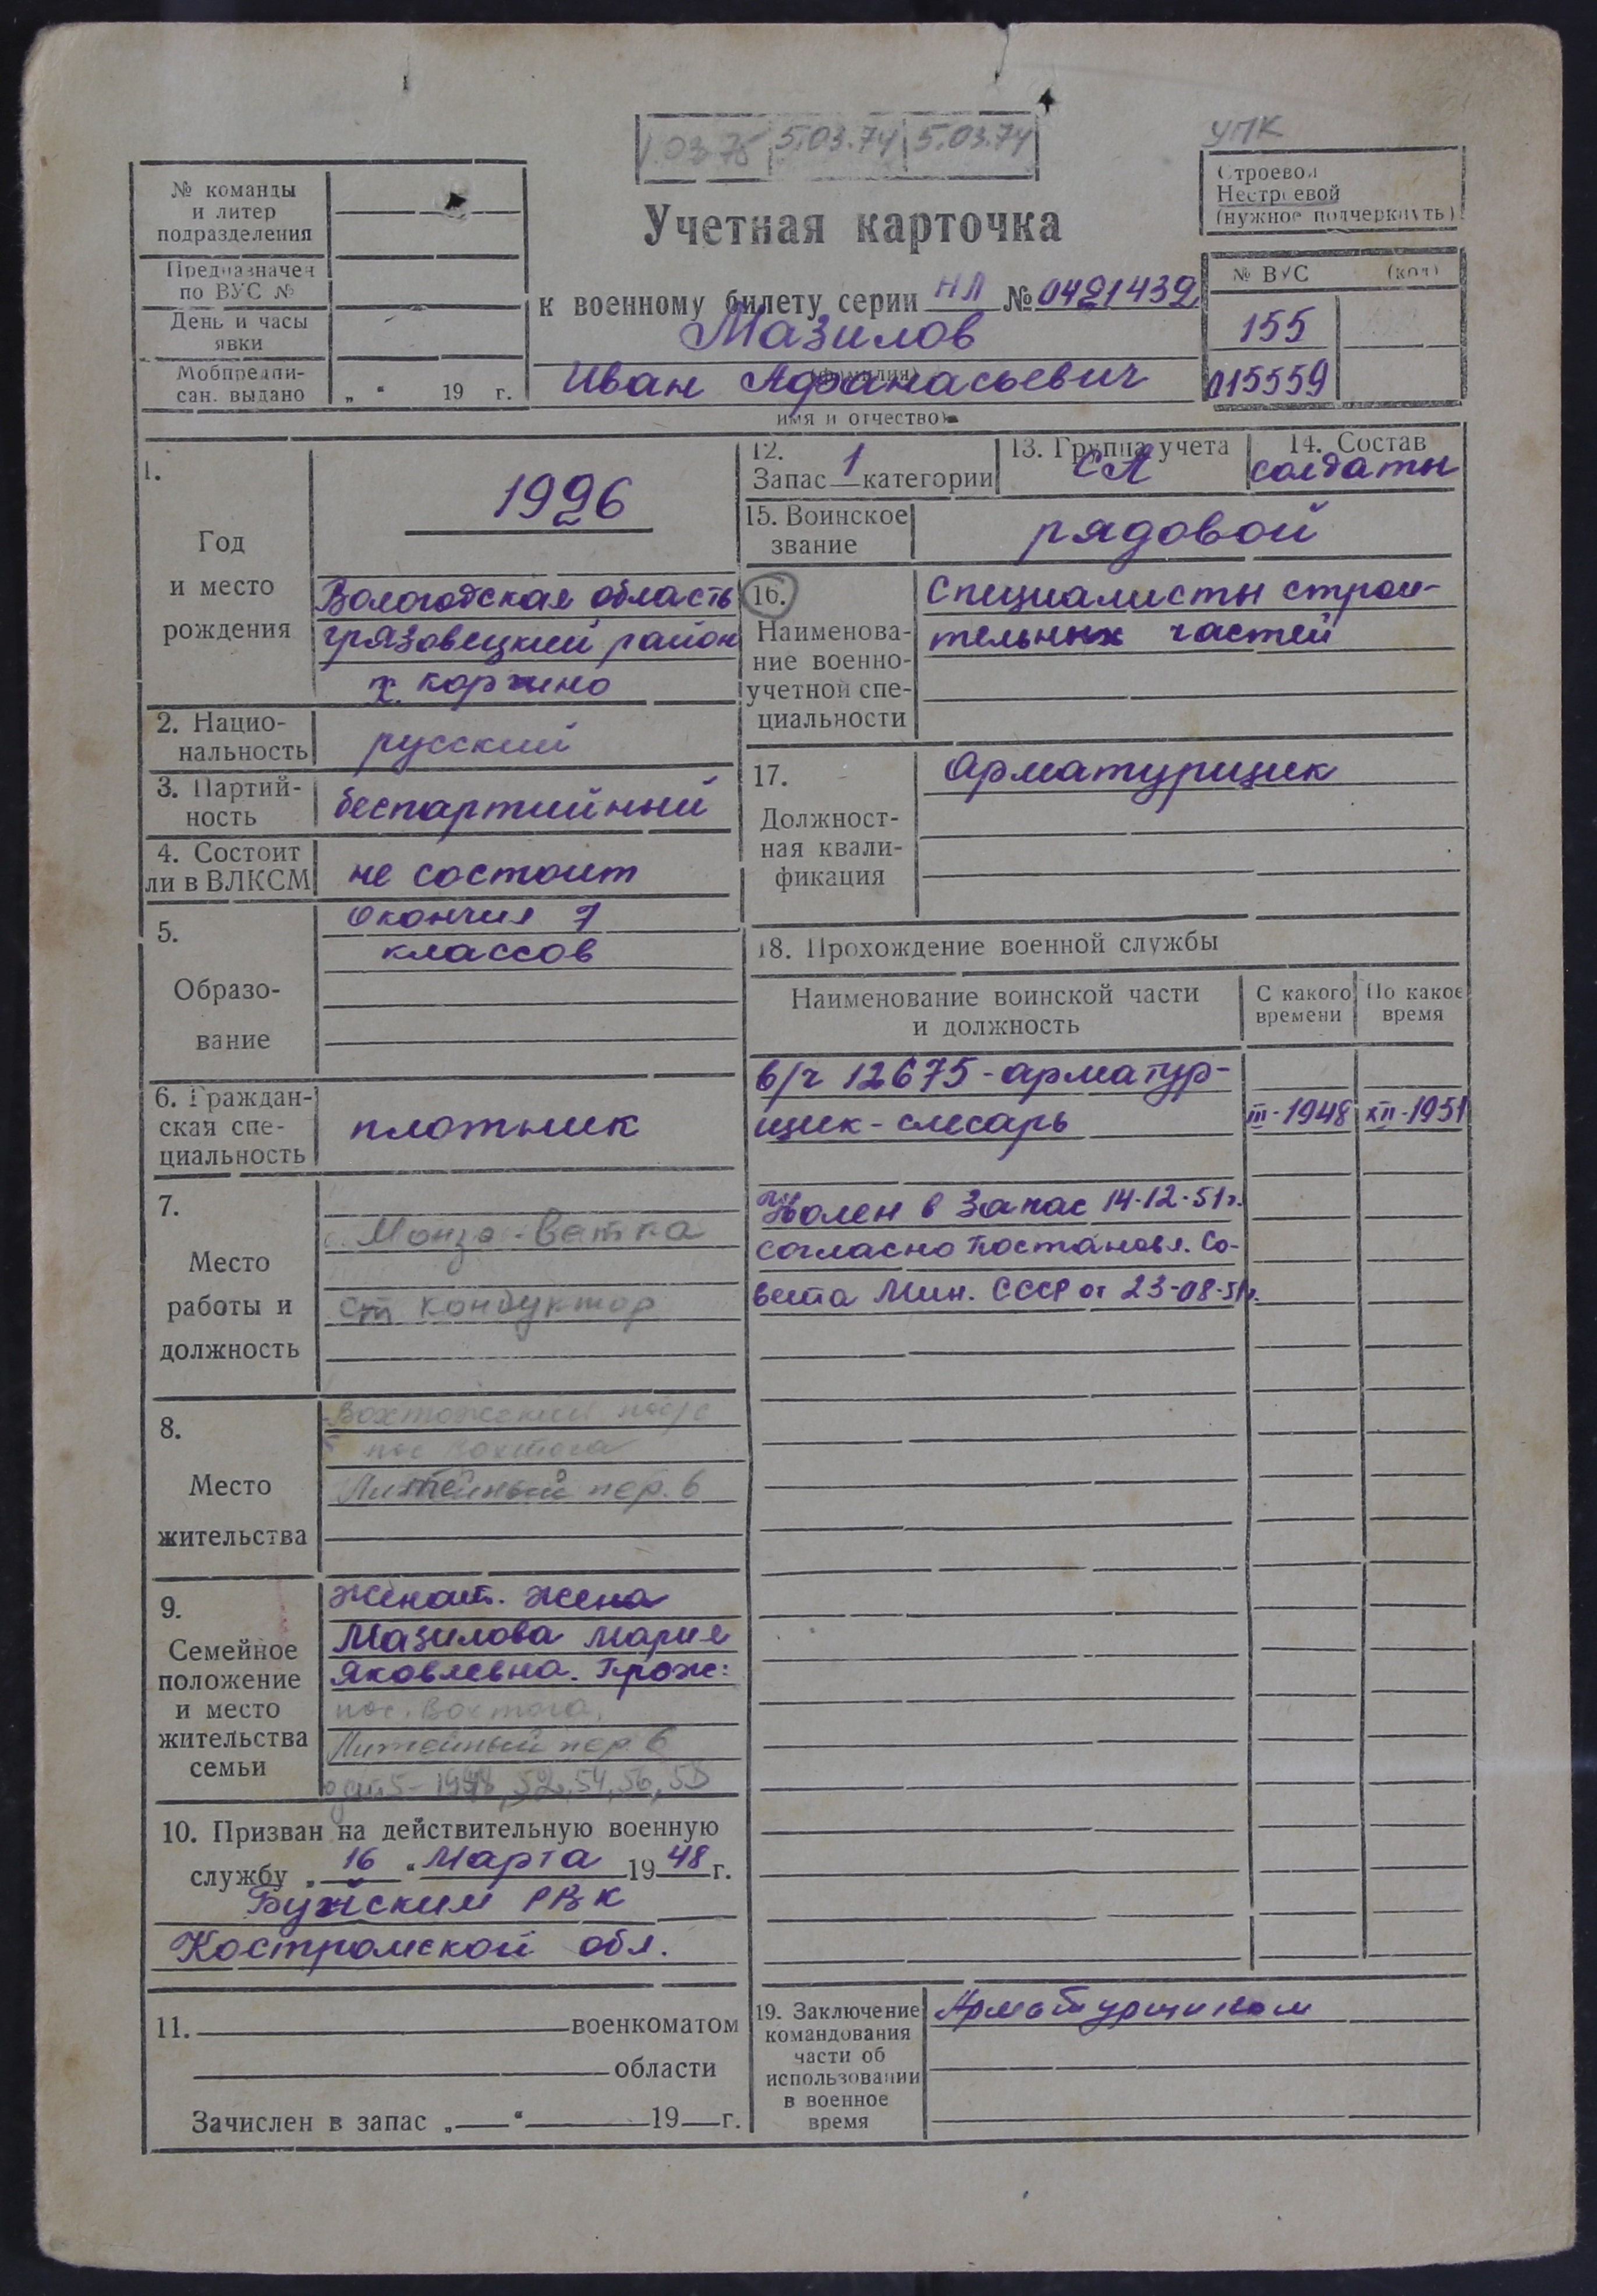 1.03.75 5.03.74 5.03.74
УПК
№ команды
и литер
подразделения
Предназначен
по ВУС №
День и часы
явки
Мобпредпи-
сан. выдано „ “ 19 г.
Учетная карточка
к военному билету серии НЛ № 0421432
Мазилов
(фамилия)
Иван Афанасьевич
имя и отчество)
Строевой
Нестроевой
(нужное подчеркнуть)
№ ВУС (код)
155
015559
1.
Год
и место
рождения
1926
Вологодская область
грязовецкий район
х. коржино
2. Нацио-
нальность
русский
3. Партий-
ность
беспартийный
4. Состоит
ли в ВЛКСМ
не состоит
5.
Образо-
вание
Окончил 7
классов
6. Граждан-
ская спе-
циальность
плотник
7.
Место
работы и
должность
Монзо-Ветка
ст кондуктор
8.
Место
жительства
пос Вохтога
Литейный пер. 6
9.
Семейное
положение
и место
жительства
семьи
Женат. жена
Мазилова Мария
Яковлевна. Прож:
пос. Вохтога,
Литейный пер. 6
52, 54, 56, 58
10. Призван на действительную военную
службу „16“ Марта 1948 г.
Буйским РВК
Костромской обл.
11. военкоматом
области
Зачислен в запас „ “ 19 г.
12.
Запас 1 категории
13. Группа учета
СА
14. Состав
солдаты
15. Воинское
звание
рядовой
16.
Наименова-
ние военно-
учетной спе-
циальности
Специалисты строи-
тельных частей
17.
Должност-
ная квали-
фикация
Арматурщик
18. Прохождение военной службы
Наименование воинской части
и должность
С какого
времени
По какое
время
в/ч 12675 - арматур-
щик - слесарь III-1948 XII-1951
Уволен в запас 14-12-51г.
согласно Постановл. Со-
вета Мин. СССР от 23-08-51г.
19. Заключение
командования
части об
использовании
в военное
время
Арматурщиком